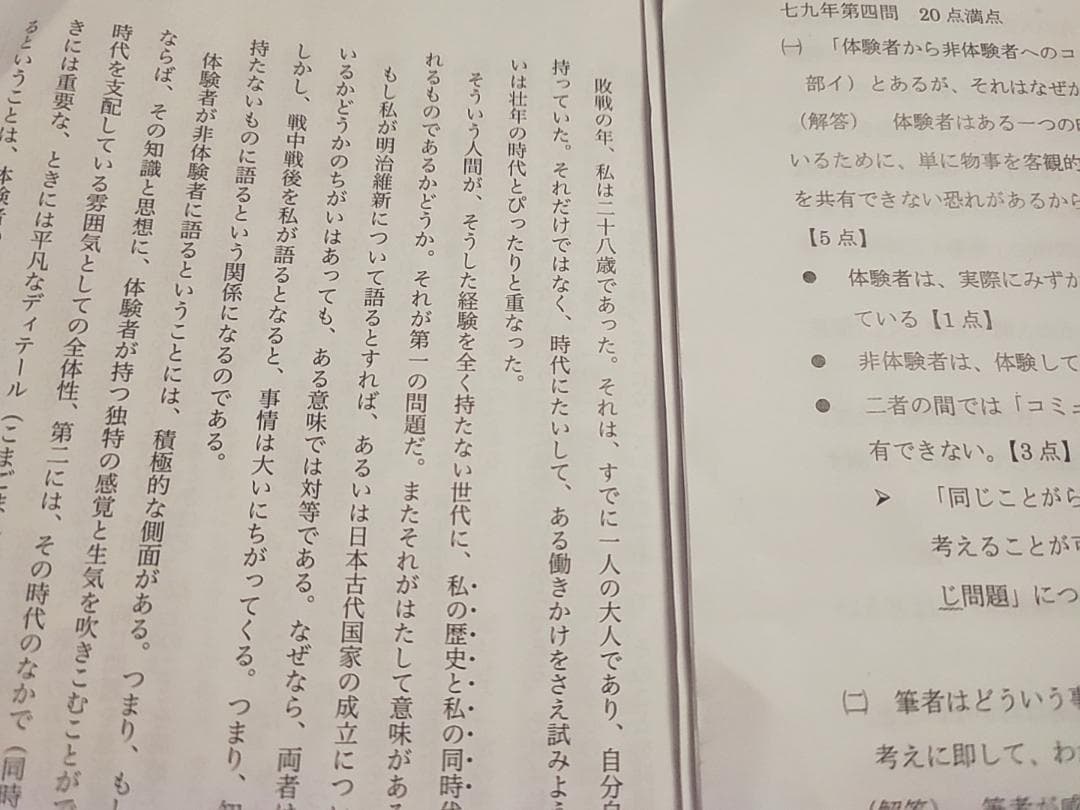 敗戦の年、私は二十八歳であった。それは、すでに一人の大人であり、自分自
持っていた。それだけではなく、時代にたいして、ある働きかけをさえ試みよう
いは壮年の時代とぴったりと重なった。
そういう人間が、そうした経験を全く持たない世代に、私の歴史と私の同時代
れるものであるかどうか。それが第一の問題だ。またそれがはたして意味がある
もし私が明治維新について語るとすれば、あるいは日本古代国家の成立につい
いるかどうかのちがいはあっても、ある意味では対等である。なぜなら、両者は
しかし、戦中戦後を私が語るとなると、事情は大いにちがってくる。つまり、
持たないものに語るという関係になるのである。
体験者が非体験者に語るということには、積極的な側面がある。つまり、もし
ならば、その知識と思想に、体験者が持つ独特の感覚と生気を吹きこむことがで
時代を支配している雰囲気としての全体性、第二には、その時代のなかで(同時
きには重要な、ときには平凡なディテール(こまごま
るということは、体験者
七九年第四問 20点満点
㈠ 「体験者から非体験者へのコ
部イ)とあるが、それはなぜか
(解答) 体験者はある一つの時
いるために、単に物事を客観的
を共有できない恐れがあるから
【5点】
● 体験者は、実際にみずか
ている【1点】
● 非体験者は、体験して
● 二者の間では「コミュ
有できない。【3点】
➢ 「同じことがら
考えることが可
じ問題」につ
㈡ 筆者はどういう事
考えに即して、わ
(解答) 筆者が